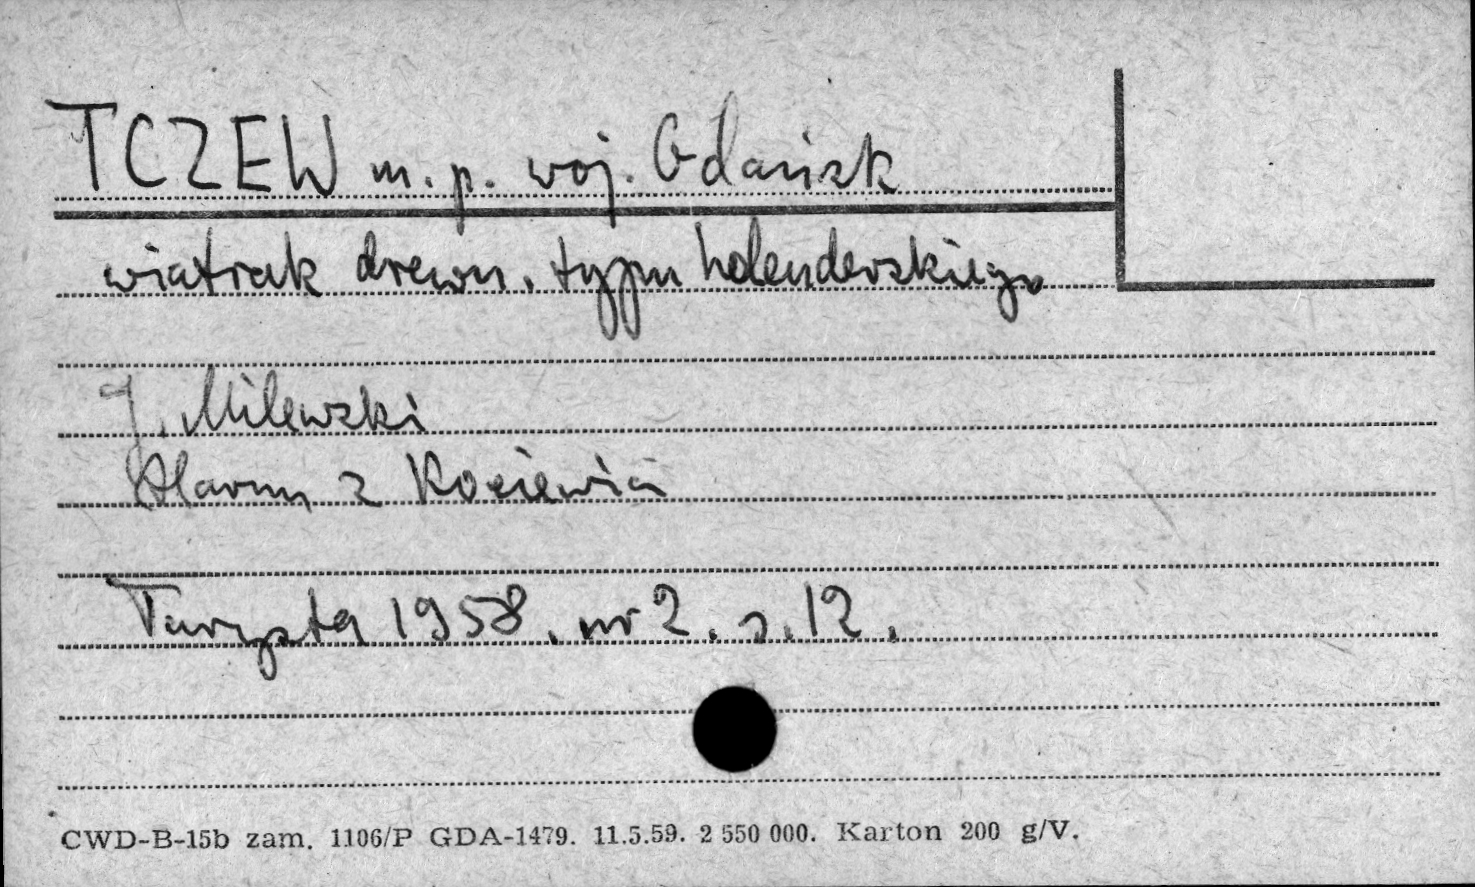 TCZEW m. p. woj. Gdańsk
wiatrak drewn. typu holenderskiego
J. Milewski
Alarm z Kociewia
Turysta 1958. nr 2. s. 12.
CWD-B-15b zam. 1106/P GDA-1479. 11.5.59. 2 550 000. Karton 200 g/V.